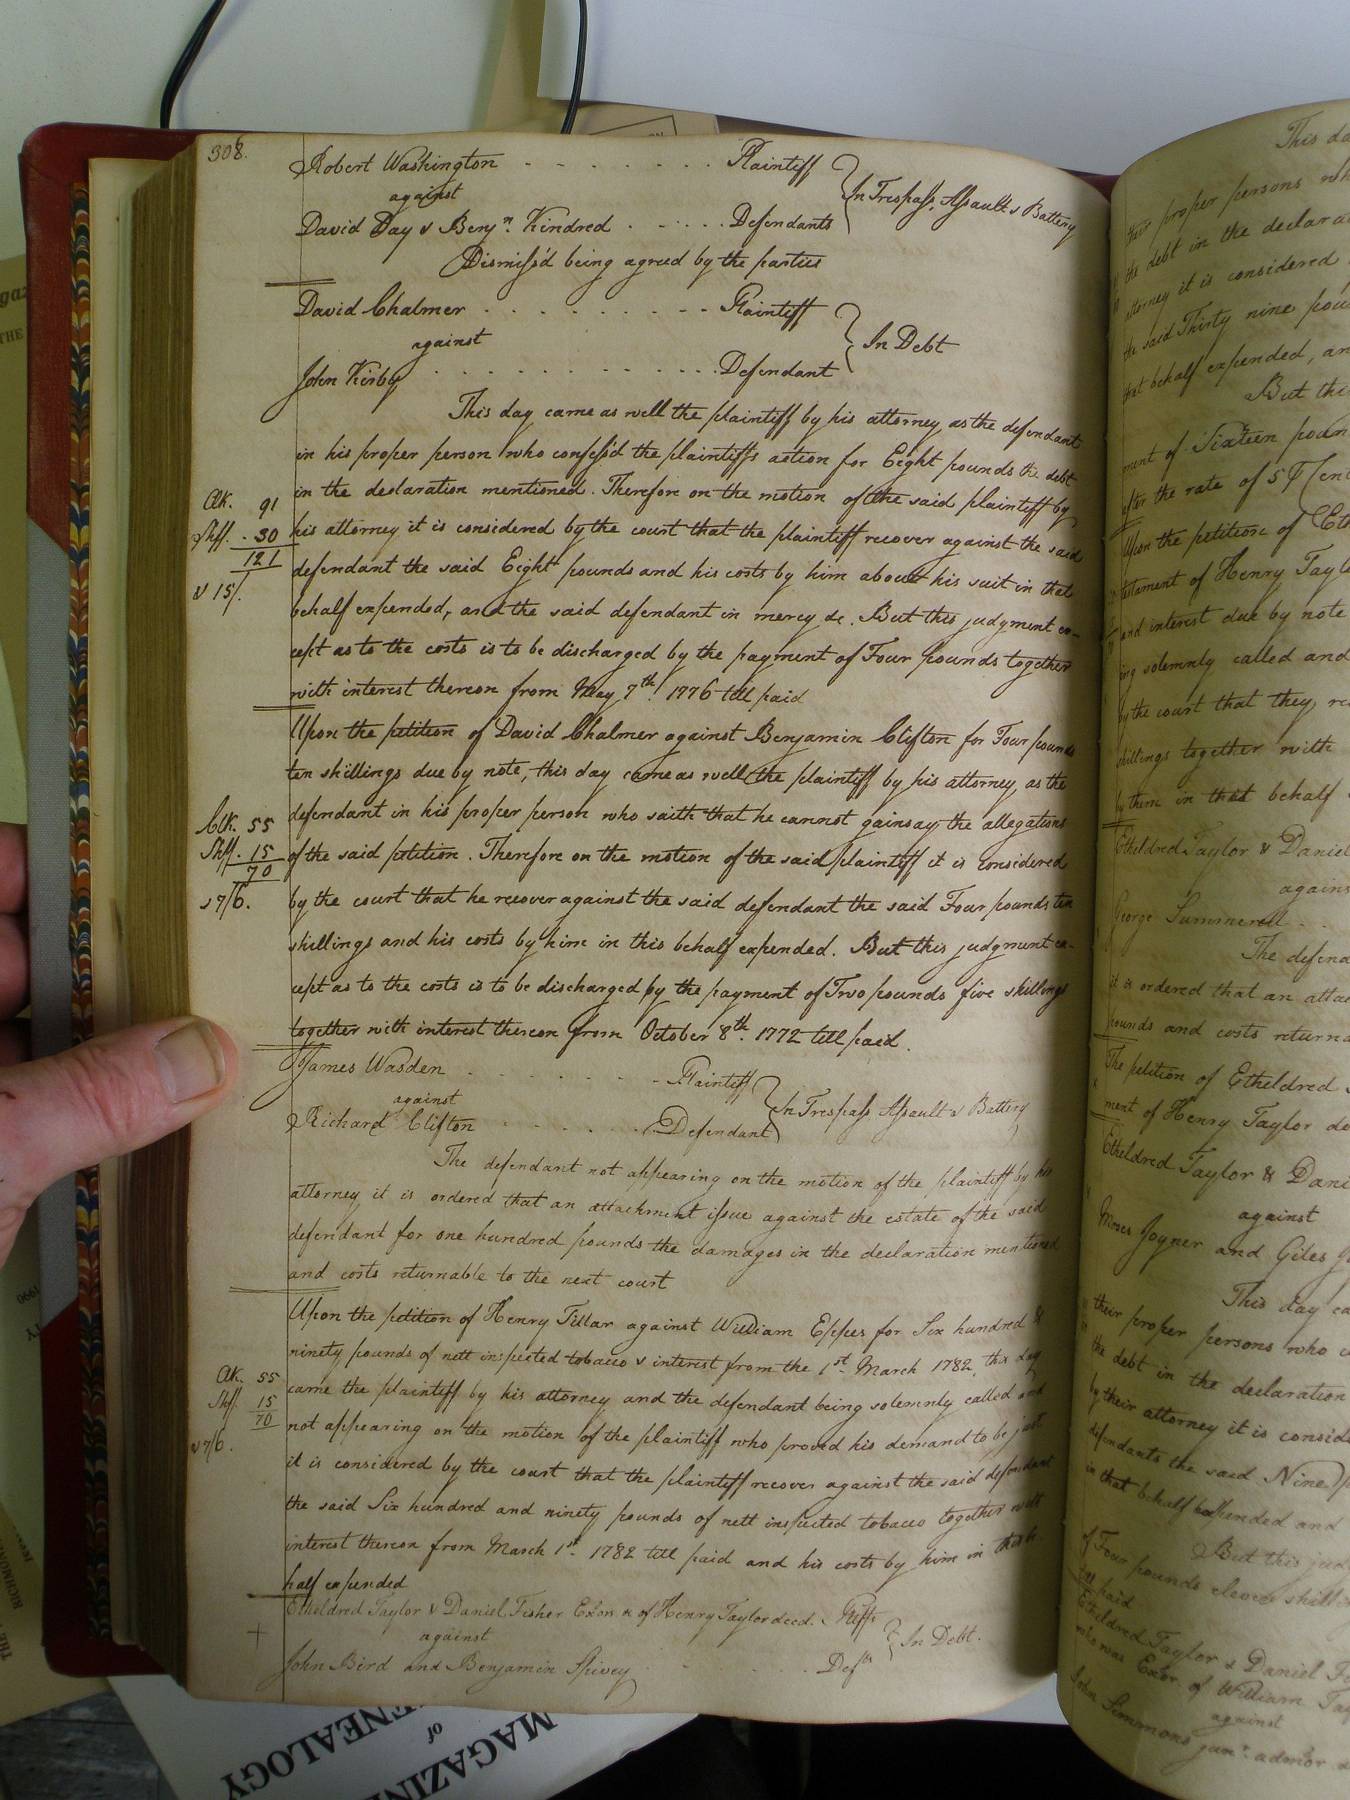 308.
Robert Washington . . . . . . . Plaintiff
against
In Trespass, Assault & Battery
David Day & Benjn. Kindred . . . . . Defendants
Dismiss'd being agreed by the parties
David Chalmer . . . . . . . . . Plaintiff
against
In Debt
John Kirby . . . . . . . . . . . Defendant
This day came as well the plaintiff by his attorney as the defendant
in his proper person who confess'd the plaintiffs action for Eight pounds the debt
in the declaration mentioned. Therefore on the motion of the said plaintiff by
Clk. 91
his attorney it is considered by the court that the plaintiff recover against the said
Shff. . 30
121
defendant the said Eight pounds and his costs by him about his suit in that
& 15/.
behalf expended, and the said defendant in mercy &c. But this judgment ex-
cept as to the costs is to be discharged by the payment of Four pounds together
with interest thereon from May 7th. 1776 till paid
Upon the petition of David Chalmer against Benjamin Clifton for Four pounds
ten shillings due by note, this day came as well the plaintiff by his attorney, as the
defendant in his proper person who saith that he cannot gainsay the allegations
Clk. 55
Shff. 15
of the said petition. Therefore on the motion of the said plaintiff it is considered
70
& 7/6.
by the court that he recover against the said defendant the said Four pounds ten
shillings and his costs by him in this behalf expended. But this judgment ex-
cept as to the costs is to be discharged by the payment of Two pounds five shillings
together with interest thereon from October 8th. 1772 till paid.
James Wasden . . . . . . . Plaintiff
against
In Trespass, Assault & Battery
Richard Clifton . . . . . . Defendant
The defendant not appearing on the motion of the plaintiff by his
attorney it is ordered that an attachment issue against the estate of the said
defendant for one hundred pounds the damages in the declaration mentioned
and costs returnable to the next court
Upon the petition of Henry Tillar against William Eppes for Six hundred &
ninety pounds of nett inspected tobacco & interest from the 1st. March 1782, this day
Clk. 55
came the plaintiff by his attorney and the defendant being solemnly called and
Shff. 15
70
not appearing on the motion of the plaintiff who proved his demand to be just
& 7/6.
it is considered by the court that the plaintiff recover against the said defendant
the said Six hundred and ninety pounds of nett inspected tobacco together with
interest thereon from March 1st. 1782 till paid and his costs by him in this be-
half expended
Etheldred Taylor & Daniel Fisher Exors of Henry Taylor deced. Pltffs
against
In Debt.
John Bird and Benjamin Spivey . . . Defts
This da
their proper persons wh
the debt in the declara
attorney it is considered
the said Thirty nine pou
that behalf expended, an
But thi
ment of Sixteen poun
after the rate of 5 P Cent
Upon the petition of Eth
testament of Henry Tayl
and interest due by note
ing solemnly called and
by the court that they re
shillings together with
by them in that behalf
Etheldred Taylor & Daniel
agains
George Summerell . .
The defend
it is ordered that an attac
pounds and costs returna
The petition of Etheldred
ment of Henry Taylor de
Etheldred Taylor & Dani
against
Moses Joyner and Giles J
This day ca
their proper persons who c
the debt in the declaration
by their attorney it is consid
defendants the said Nine p
in that behalf expended and
But this jud
of Four pounds eleven shill
paid
Etheldred Taylor & Daniel F
who was Exor. of William Ta
against
John Simmons junr. admor
MAGAZINE
of
GENEALOGY